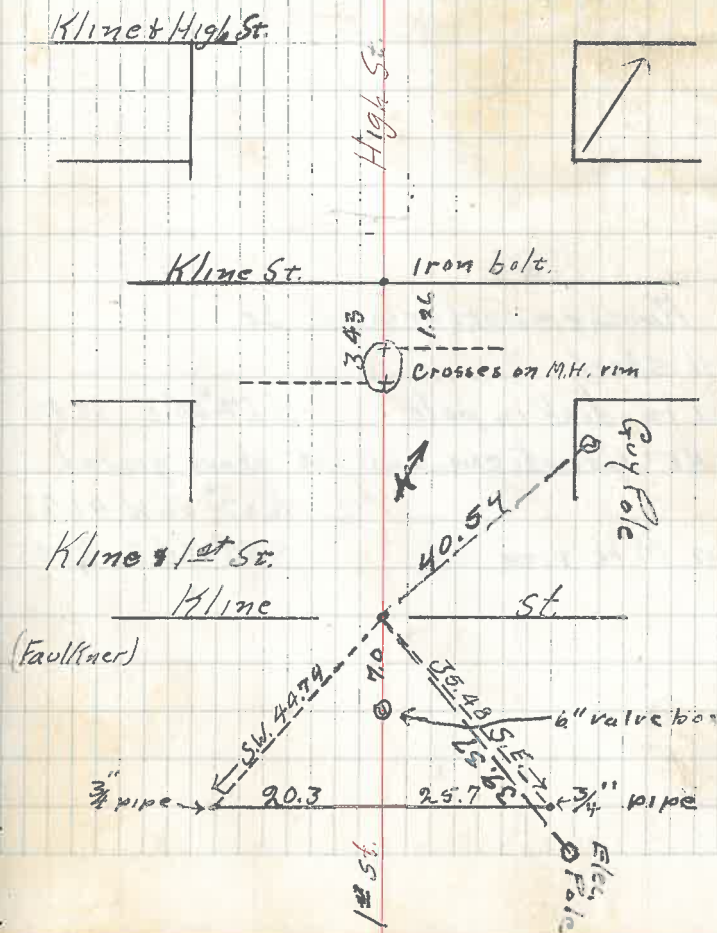 Kline & High St.
High St.
Kline St.
Iron bolt.
3.43
1.26
Crosses on M.H. rim
Guy Pole
40.54
Kline & 1st St.
Kline
St.
(Faulkner)
7.0
S.W. 44.79
35.48 S.E.
39.57
6" valve bo
3/4" pipe
20.3
25.7
3/4" pipe
Elec. Pole
1st St.